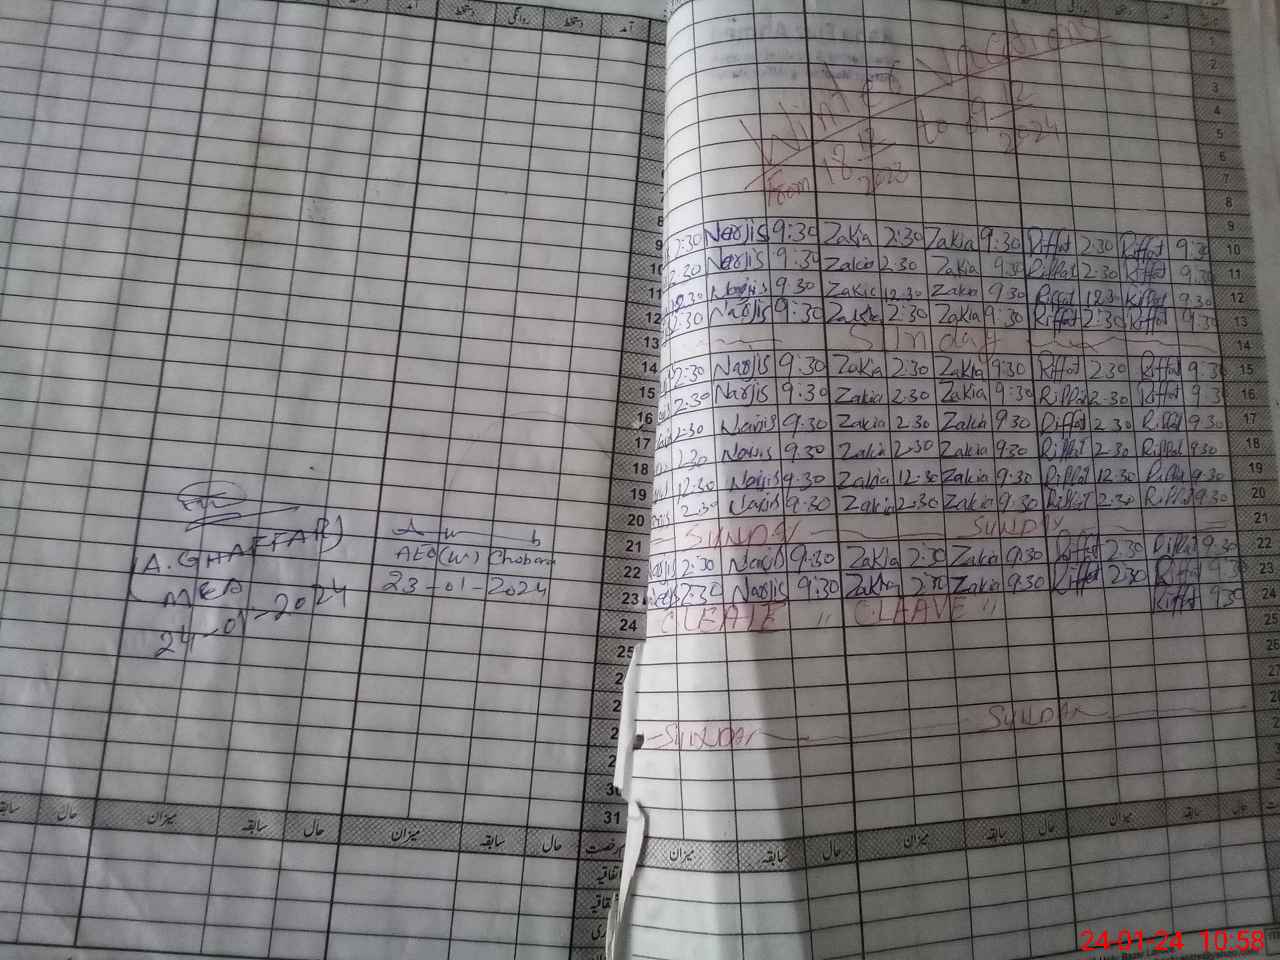 آمد دستخط روانگی دستخط آمد
Winter Vacations
From 18 12 2023 to 09 12 2024
1
2
3
4
5
6
7
8
9
2:30 Narjis 9:30 Zakia 2:30 Zakia 9:30 Riffat 2:30 Riffat 9:30 10
2:30 Narjis 9:30 Zakia 2:30 Zakia 9:30 Riffat 2:30 Riffat 9:30 11
12:30 Narjis 9:30 Zakia 12:30 Zakia 9:30 Riffat 12:30 Riffat 9:30 12
2:30 Narjis 9:30 Zakia 2:30 Zakia 9:30 Riffat 2:30 Riffat 9:30 13
Sunday 14
2:30 Narjis 9:30 Zakia 2:30 Zakia 9:30 Riffat 2:30 Riffat 9:3 15
2:30 Narjis 9:30 Zakia 2:30 Zakia 9:30 Riffat 2:30 Riffat 9:3 16
2:30 Narjis 9:30 Zakia 2:30 Zakia 9:30 Riffat 2:30 Riffat 9:30 17
2:30 Narjis 9:30 Zakia 2:30 Zakia 9:30 Riffat 2:30 Riffat 9:30 18
12:30 Narjis 9:30 Zakia 12:30 Zakia 9:30 Riffat 12:30 Riffat 9:30 19
2:30 Narjis 9:30 Zakia 2:30 Zakia 9:30 Riffat 2:30 Riffat 9:30 20
SUNDAY SUNDAY 21
2:30 Narjis 9:30 Zakia 2:30 Zakia 9:30 Riffat 2:30 Riffat 9:30 22
2:30 Narjis 9:30 Zakia 2:30 Zakia 9:30 Riffat 2:30 Riffat 9:30 23
Riffat 9:30 24
CLEAVE " CLAAVE " 25
26
SUNDAY SUNDAY
8
9
10
11
12
13
14
15
16
17
18
19
20
21
22
23
24
25
31
(A. GHAFFAR)
MEA
24-01-2024
AEO (W) Chobara
23-01-2024
حال میزان سابقہ حال میزان سابقہ حال
میزان سابقہ حال میزان سابقہ حال میزان سابقہ حال
24-01-24 10:58